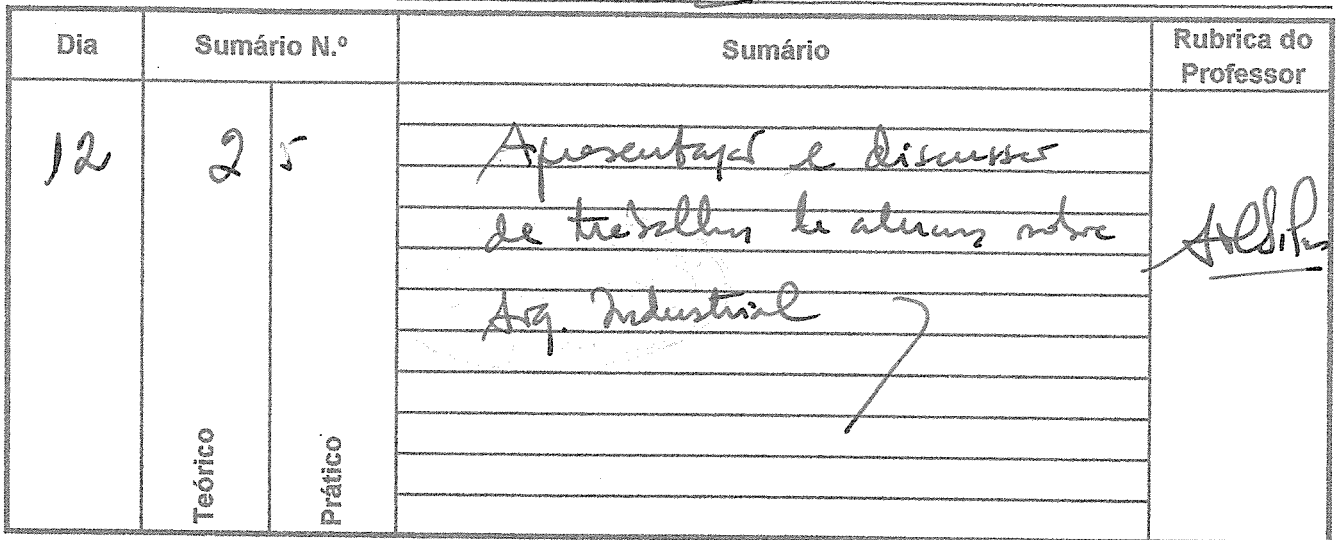 Dia Sumário N.º Sumário Rubrica do Professor
12 2 5 Apresentação e discussão
de trabalhos de alunos sobre
Arq. Industrial
Teórico Prático